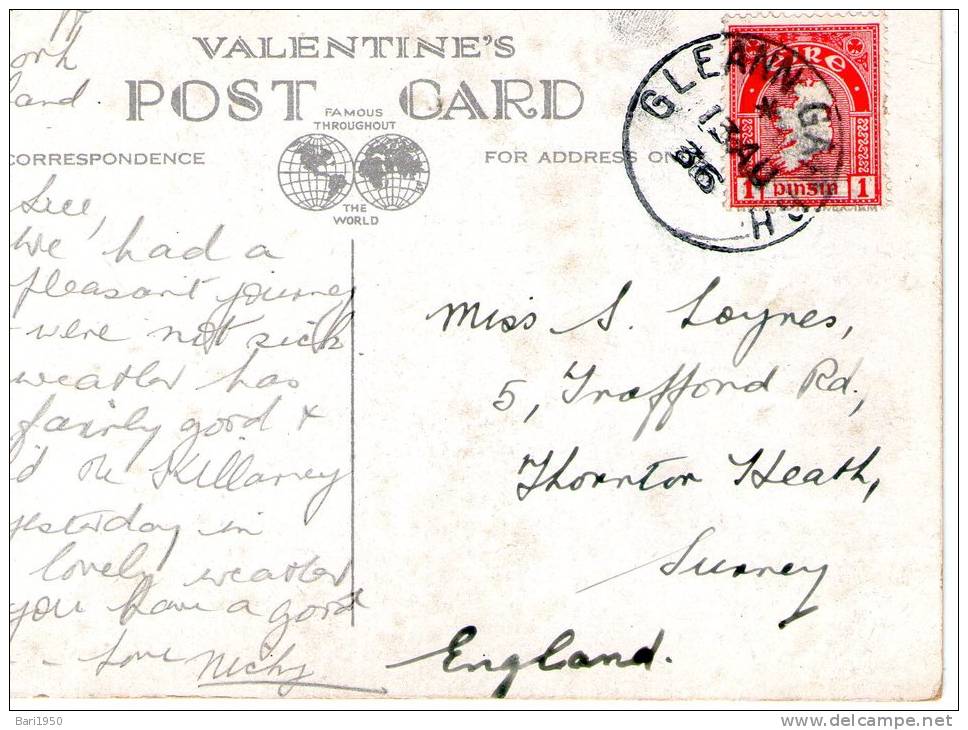 VALENTINE'S
POST CARD
FAMOUS
THROUGHOUT
THE
WORLD
CORRESPONDENCE
FOR ADDRESS ON
GLEANN GA
13 AU
36
ÉIRE
1 pinsin 1
ork
land.
We had a
pleasant journey
were not sick
weather has
fairly good +
'd the Killarney
yesterday in
lovely weather
you have a good
- Love Nicky
Miss S. Loynes,
5, Trafford Rd.,
Thornton Heath,
Surrey
England.
Bari1950
www.delcampe.net